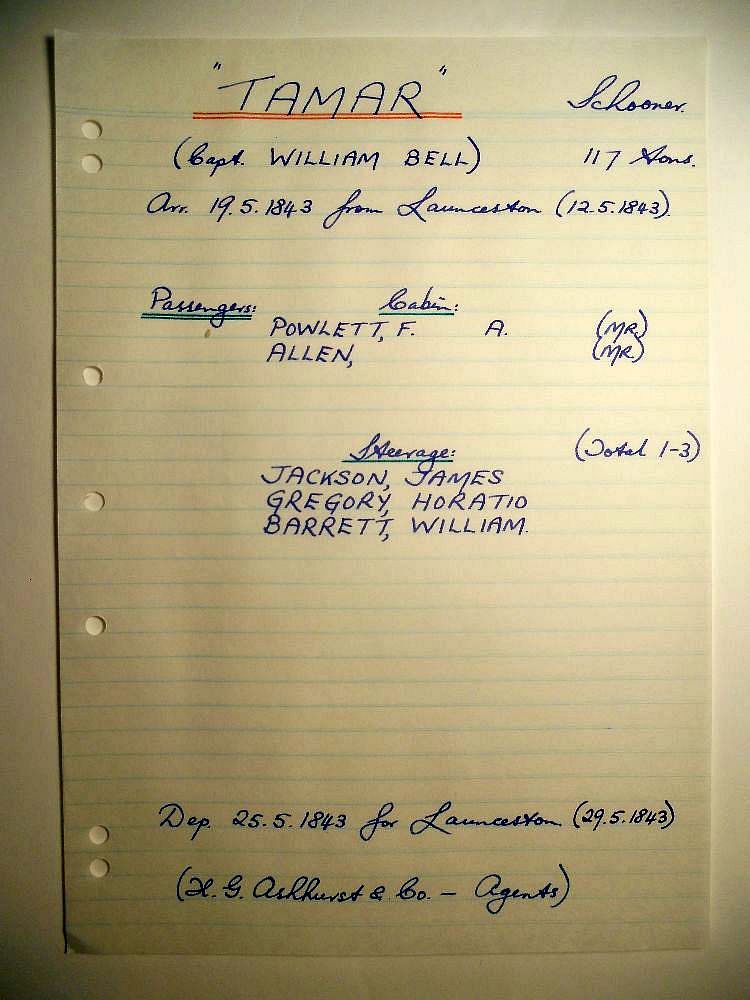 "TAMAR" Schooner.
(Capt. WILLIAM BELL) 117 tons.
Arr. 19.5.1843 from Launceston (12.5.1843).
Passengers: Cabin:
POWLETT, F. A. (MR.)
ALLEN, (MR.)
Steerage: (Total 1-3)
JACKSON, JAMES
GREGORY, HORATIO
BARRETT, WILLIAM.
Dep. 25.5.1843 for Launceston (29.5.1843)
(H. G. Ashhurst & Co. – Agents)